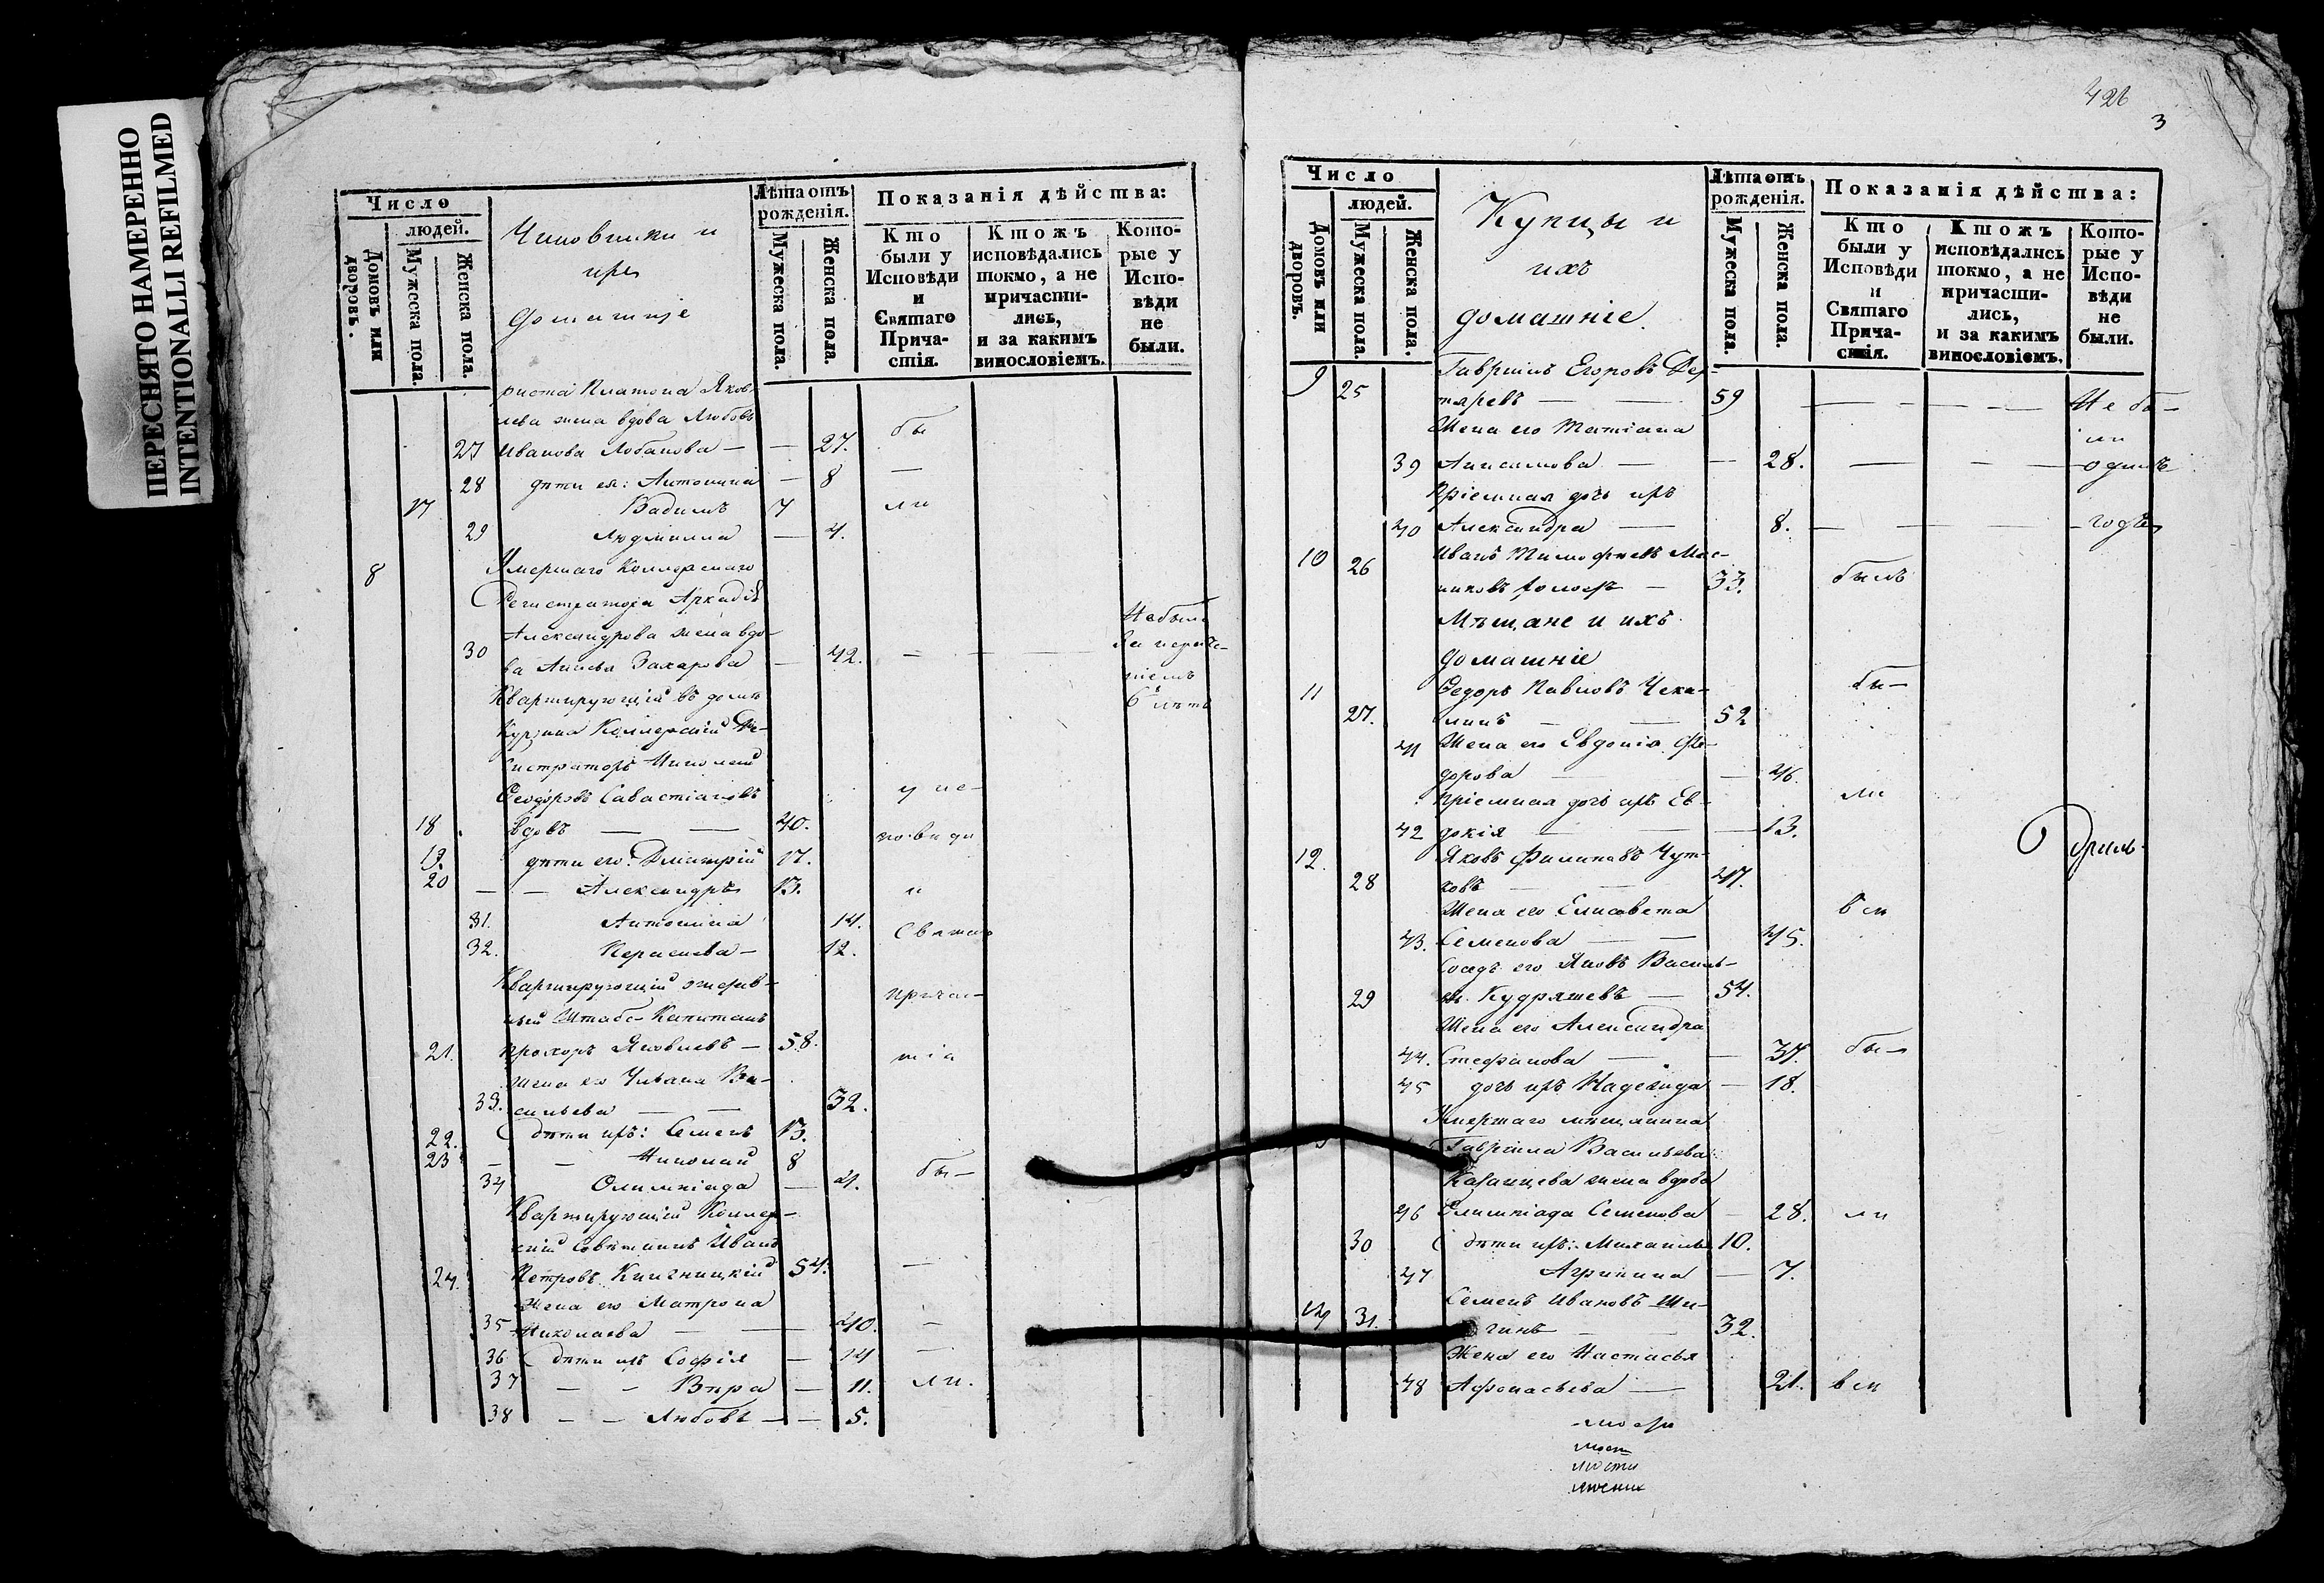 ПЕРЕСНЯТО НАМЕРЕННО
INTENTIONALLI REFILMED
426
3
Число
людей.
Домовъ или дворовъ.
Мужеска пола.
Женска пола.
Чиновники и
ихъ
домашніе
Лѣта отъ рожденія.
Мужеска пола.
Женска пола.
Показанія дѣйства:
Кто были у Исповѣди и Святаго Прича-стія.
Ктожъ исповѣдались токмо, а не причасти-лись, и за какимъ винословіемъ.
Кото-рые у Испо-вѣди не были.
риста Платона Яков-
лева жена вдова Любовь
27 Иванова Лобанова — — 27. бы
28 дѣти ея: Антонина — 8 —
17 Вадимъ 7 ли
29 Людмилла — 4.
8 Умершаго Коллежскаго
Регистратора Аркадія
Александрова жена вдо-
30 ва Анисья Захарова — 42. — —
6 лѣтъ
Квартирующій въ домѣ
Коллежскій Ре-
гистраторъ Николай
Феодоровъ Савастіановъ у ис-
18 вдовъ — — 40. повѣди
19. дѣти его: Дмитрій 17.
20 — — Александръ 13. и
31. Антонина 14. Святаго
32. 12.
Квартирующій
Штабс-Капитанъ причас-
21. Прохоръ Яковлевъ — 58. тія
Жена его Ва-
33. сильева — — 32.
22. дѣти ихъ: Семенъ 13.
23 — — Николай 8
34 Олимпіада — 4. бы—
Квартирующій Коллеж-
скій Совѣтникъ Иванъ
24. Петровъ 54. —
Жена его Матрона
35 Николаева — — 40. —
36 дѣти ихъ Софія — 14 —
37 — — Вѣра — 11. ли.
38 — — Любовь — — 5.
Число
людей.
Домовъ или дворовъ.
Мужеска пола.
Женска пола.
Купцы и
ихъ
домашніе.
Лѣта отъ рожденія.
Мужеска пола.
Женска пола.
Показанія дѣйства:
Кто были у Исповѣди и Святаго Прича-стія.
Ктожъ исповѣдались токмо, а не причасти-лись, и за какимъ винословіемъ.
Кото-рые у Испо-вѣди не были.
9 Гавріилъ Егоровъ Дех-
25 тяревъ — — 59 — — — Не бы—
Жена его Татіана ли
39 Анисимова — — 28. — — — одинъ
Пріемная дочь ихъ
40 Александра — 8. — — — годъ
10 Иванъ Тимофеевъ
26 холостъ — 33. былъ
Мѣщане и ихъ
домашніе
11 Федоръ Павловъ Чека- бы—
27. линъ — — 52
41 Жена его Евдокія Фе-
дорова — — 46.
Пріемная дочь ихъ Ев- ли
42 докія — — 13.
12. Яковъ Филиповъ
28 ковъ — — 47.
Жена его Елисавета вси
43. Семенова — — 45.
Сосѣдъ его Яковъ Василь-
29 Кудряшевъ — 54.
Жена его Александра
44. Стефанова — — 37. бы—
45 дочь ихъ Надежда — 18.
Умершаго мѣщанина
Гавріила Васильева
Казанцева жена вдова
46 Олимпіада Семенова — 28. ли
30 дѣти ихъ: Михаилъ 10.
47 Агрипина — 7.
Семенъ Ивановъ Ши-
14 31. гинъ — — 32.
Жена его Настасья
48 Афонасьева — 21. вси